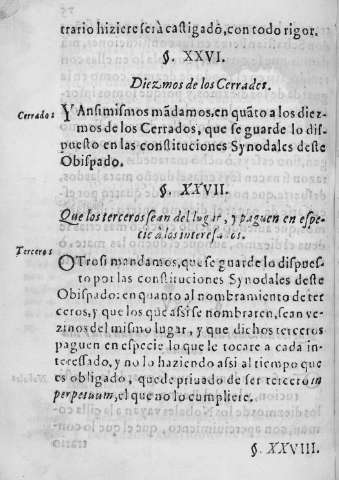 trario hiziere serà castigado, con todo rigor.
§. XXVI.
Diezmos de los Cerrados.
Cerrados
YAnsimismos mãdamos, en quãto a los diez-
mos de los Cerrados, que se guarde lo dis-
puesto en las constituciones Synodales deste
Obispado.
§. XXVII.
Que los terceros sean del lugar, y paguen en espe-
cie à los interesados.
Terceros
OTrosi mandamos, que se guarde lo dispues-
to por las constituciones Synodales deste
Obispado: en quanto al nombramiento de ter
ceros, y que los que assi se nombraren, sean ve-
zinos del mismo lugar, y que dichos terceros
paguen en especie lo que le tocare a cada in-
teressado, y no lo haziendo assi al tiempo que
es obligado, quede priuado de ser tercero in
perpetuum, el que no lo cumpliere.
§. XXVIII.